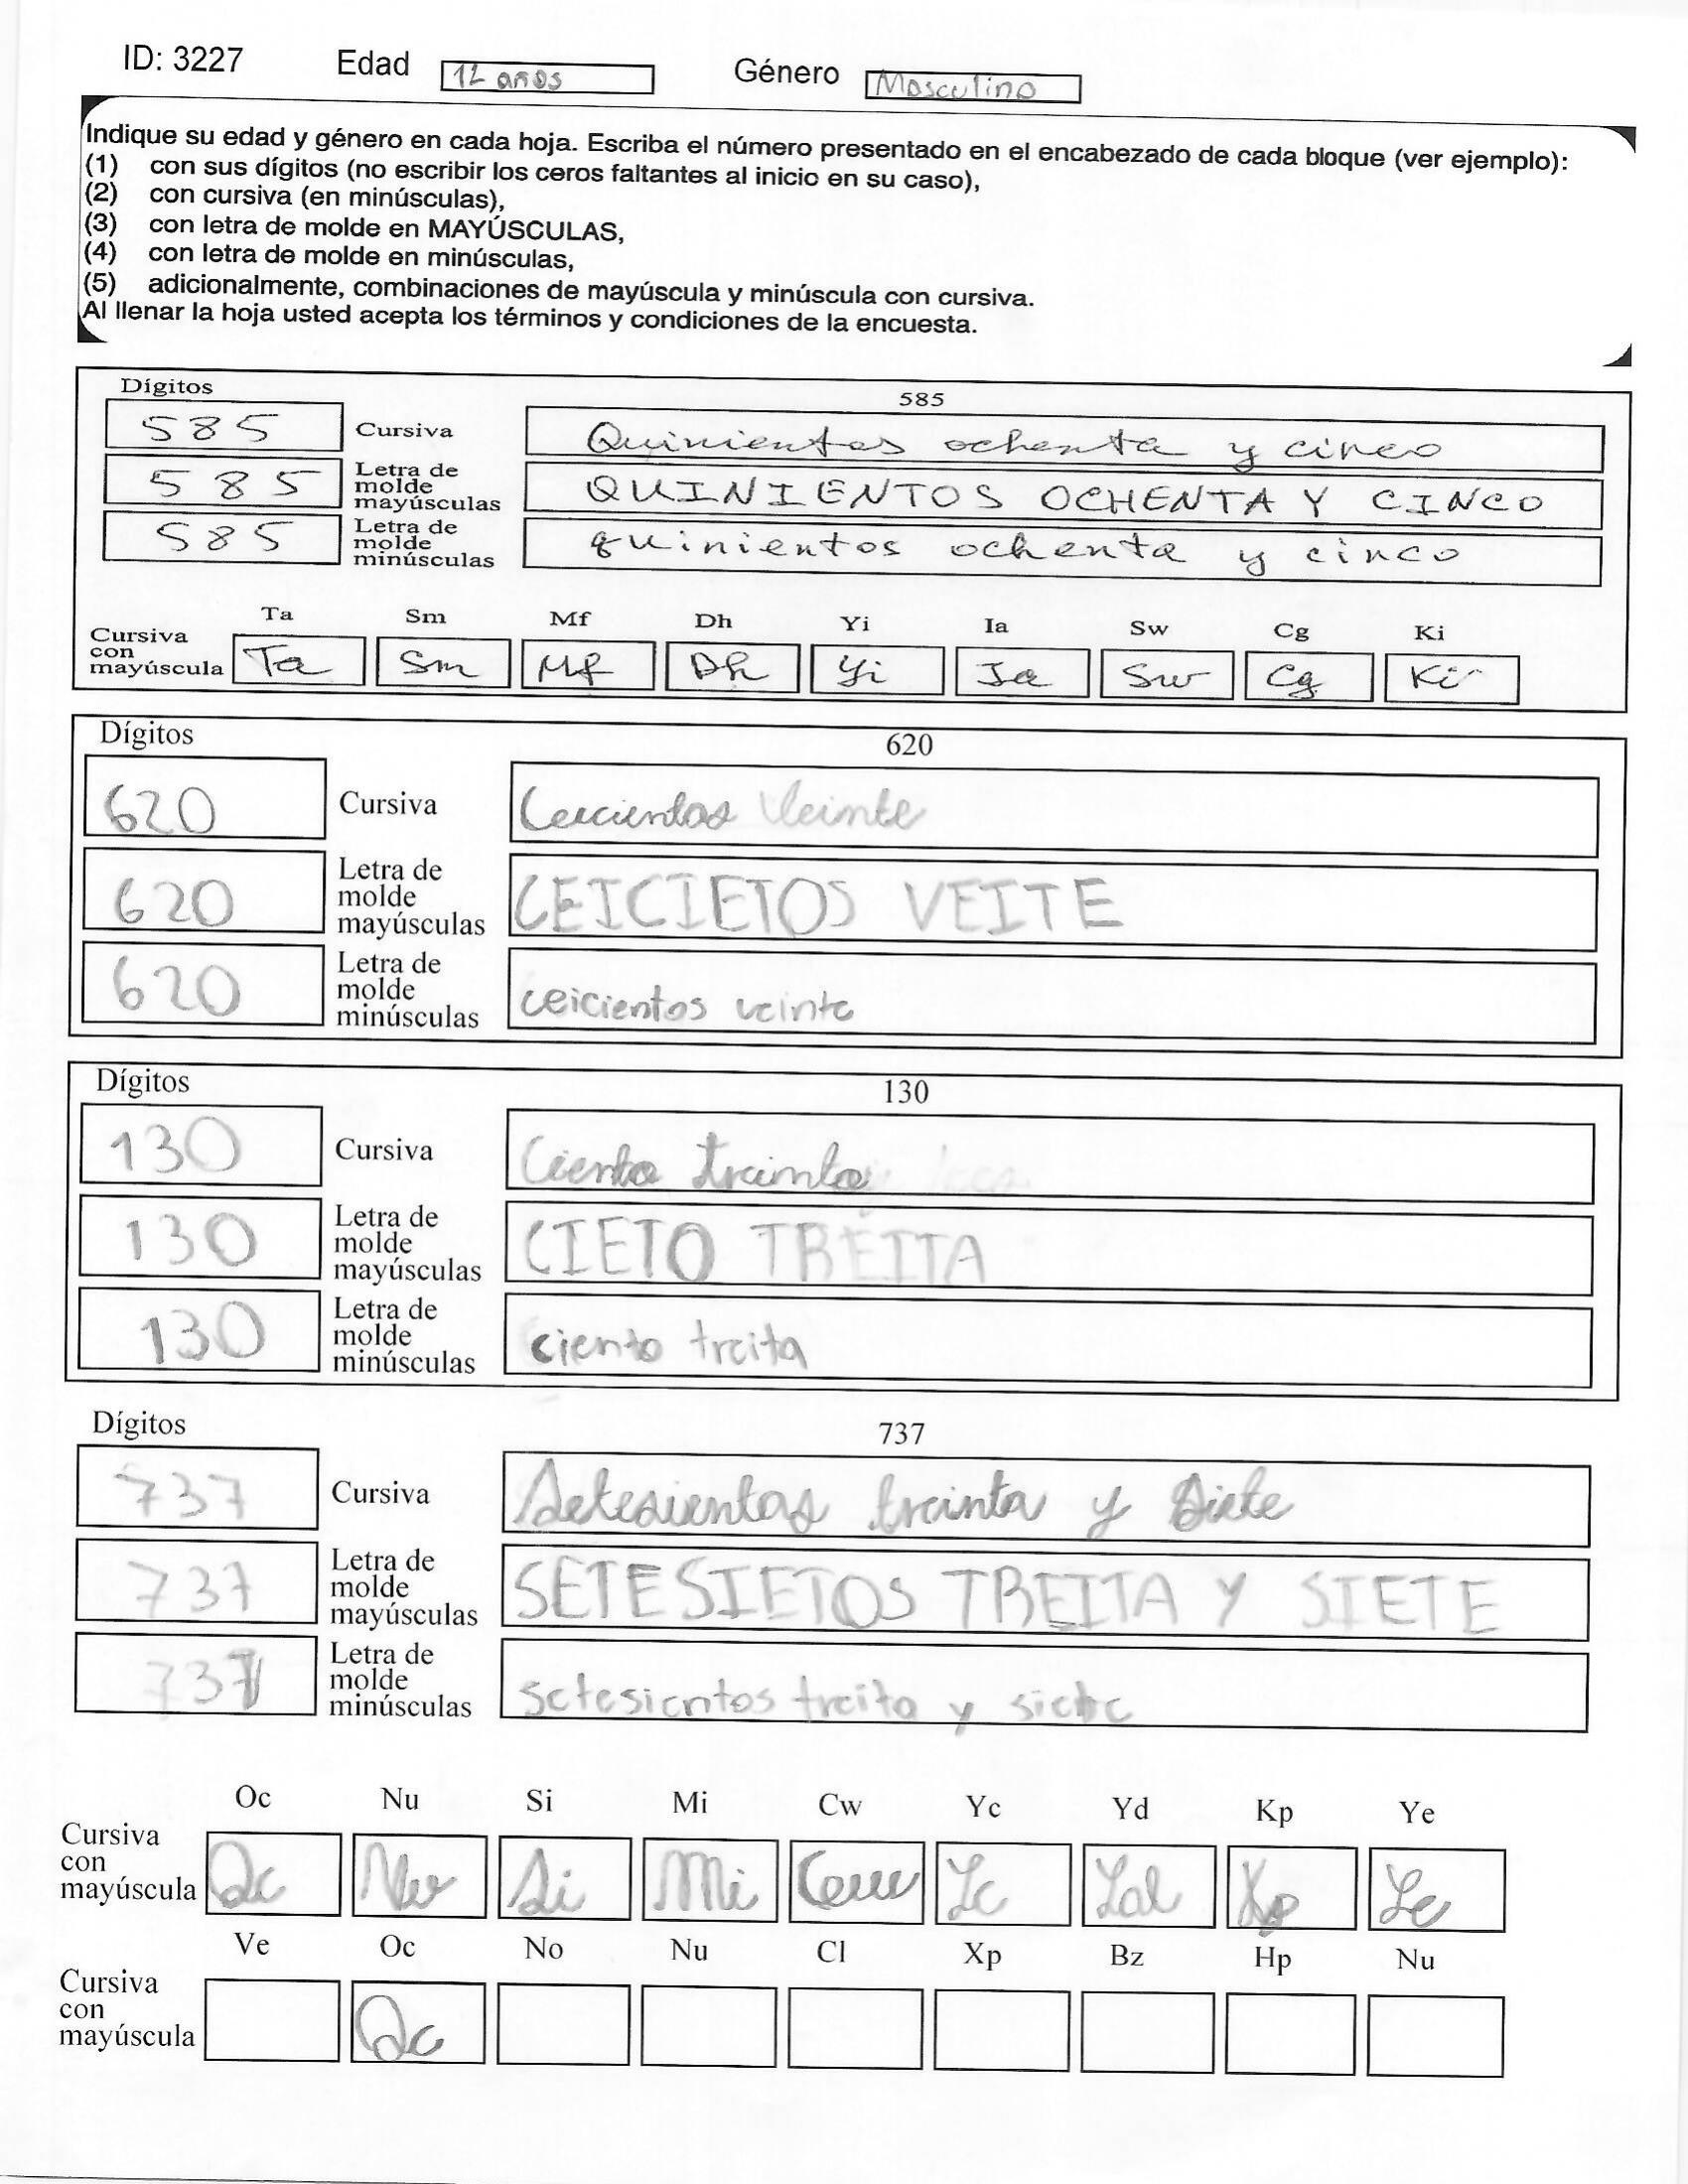 ID: 3227 Edad 12 años Género Masculino
Indique su edad y género en cada hoja. Escriba el número presentado en el encabezado de cada bloque (ver ejemplo):
(1) con sus dígitos (no escribir los ceros faltantes al inicio en su caso),
(2) con cursiva (en minúsculas),
(3) con letra de molde en MAYÚSCULAS,
(4) con letra de molde en minúsculas,
(5) adicionalmente, combinaciones de mayúscula y minúscula con cursiva.
Al llenar la hoja usted acepta los términos y condiciones de la encuesta.
Dígitos 585
585 Cursiva Quinientos ochenta y cinco
585 Letra de molde mayúsculas QUINIENTOS OCHENTA Y CINCO
585 Letra de molde minúsculas quinientos ochenta y cinco
Ta Sm Mf Dh Yi Ia Sw Cg Ki
Cursiva con mayúscula Ta Sm Mf Dh Yi Ia Sw Cg Ki
Dígitos 620
620 Cursiva Ceicientos Veinte
620 Letra de molde mayúsculas CEICIETOS VEITE
620 Letra de molde minúsculas ceicientos veinte
Dígitos 130
130 Cursiva Ciento treinta
130 Letra de molde mayúsculas CIETO TREITA
130 Letra de molde minúsculas ciento treita
Dígitos 737
737 Cursiva Setesientos treinta y siete
737 Letra de molde mayúsculas SETESIETOS TREITA Y SIETE
737 Letra de molde minúsculas setesientos treita y siete
Oc Nu Si Mi Cw Yc Yd Kp Ye
Cursiva con mayúscula Oc Nu Si Mi Cw Yc Yd Kp Ye
Ve Oc No Nu Cl Xp Bz Hp Nu
Cursiva con mayúscula Oc